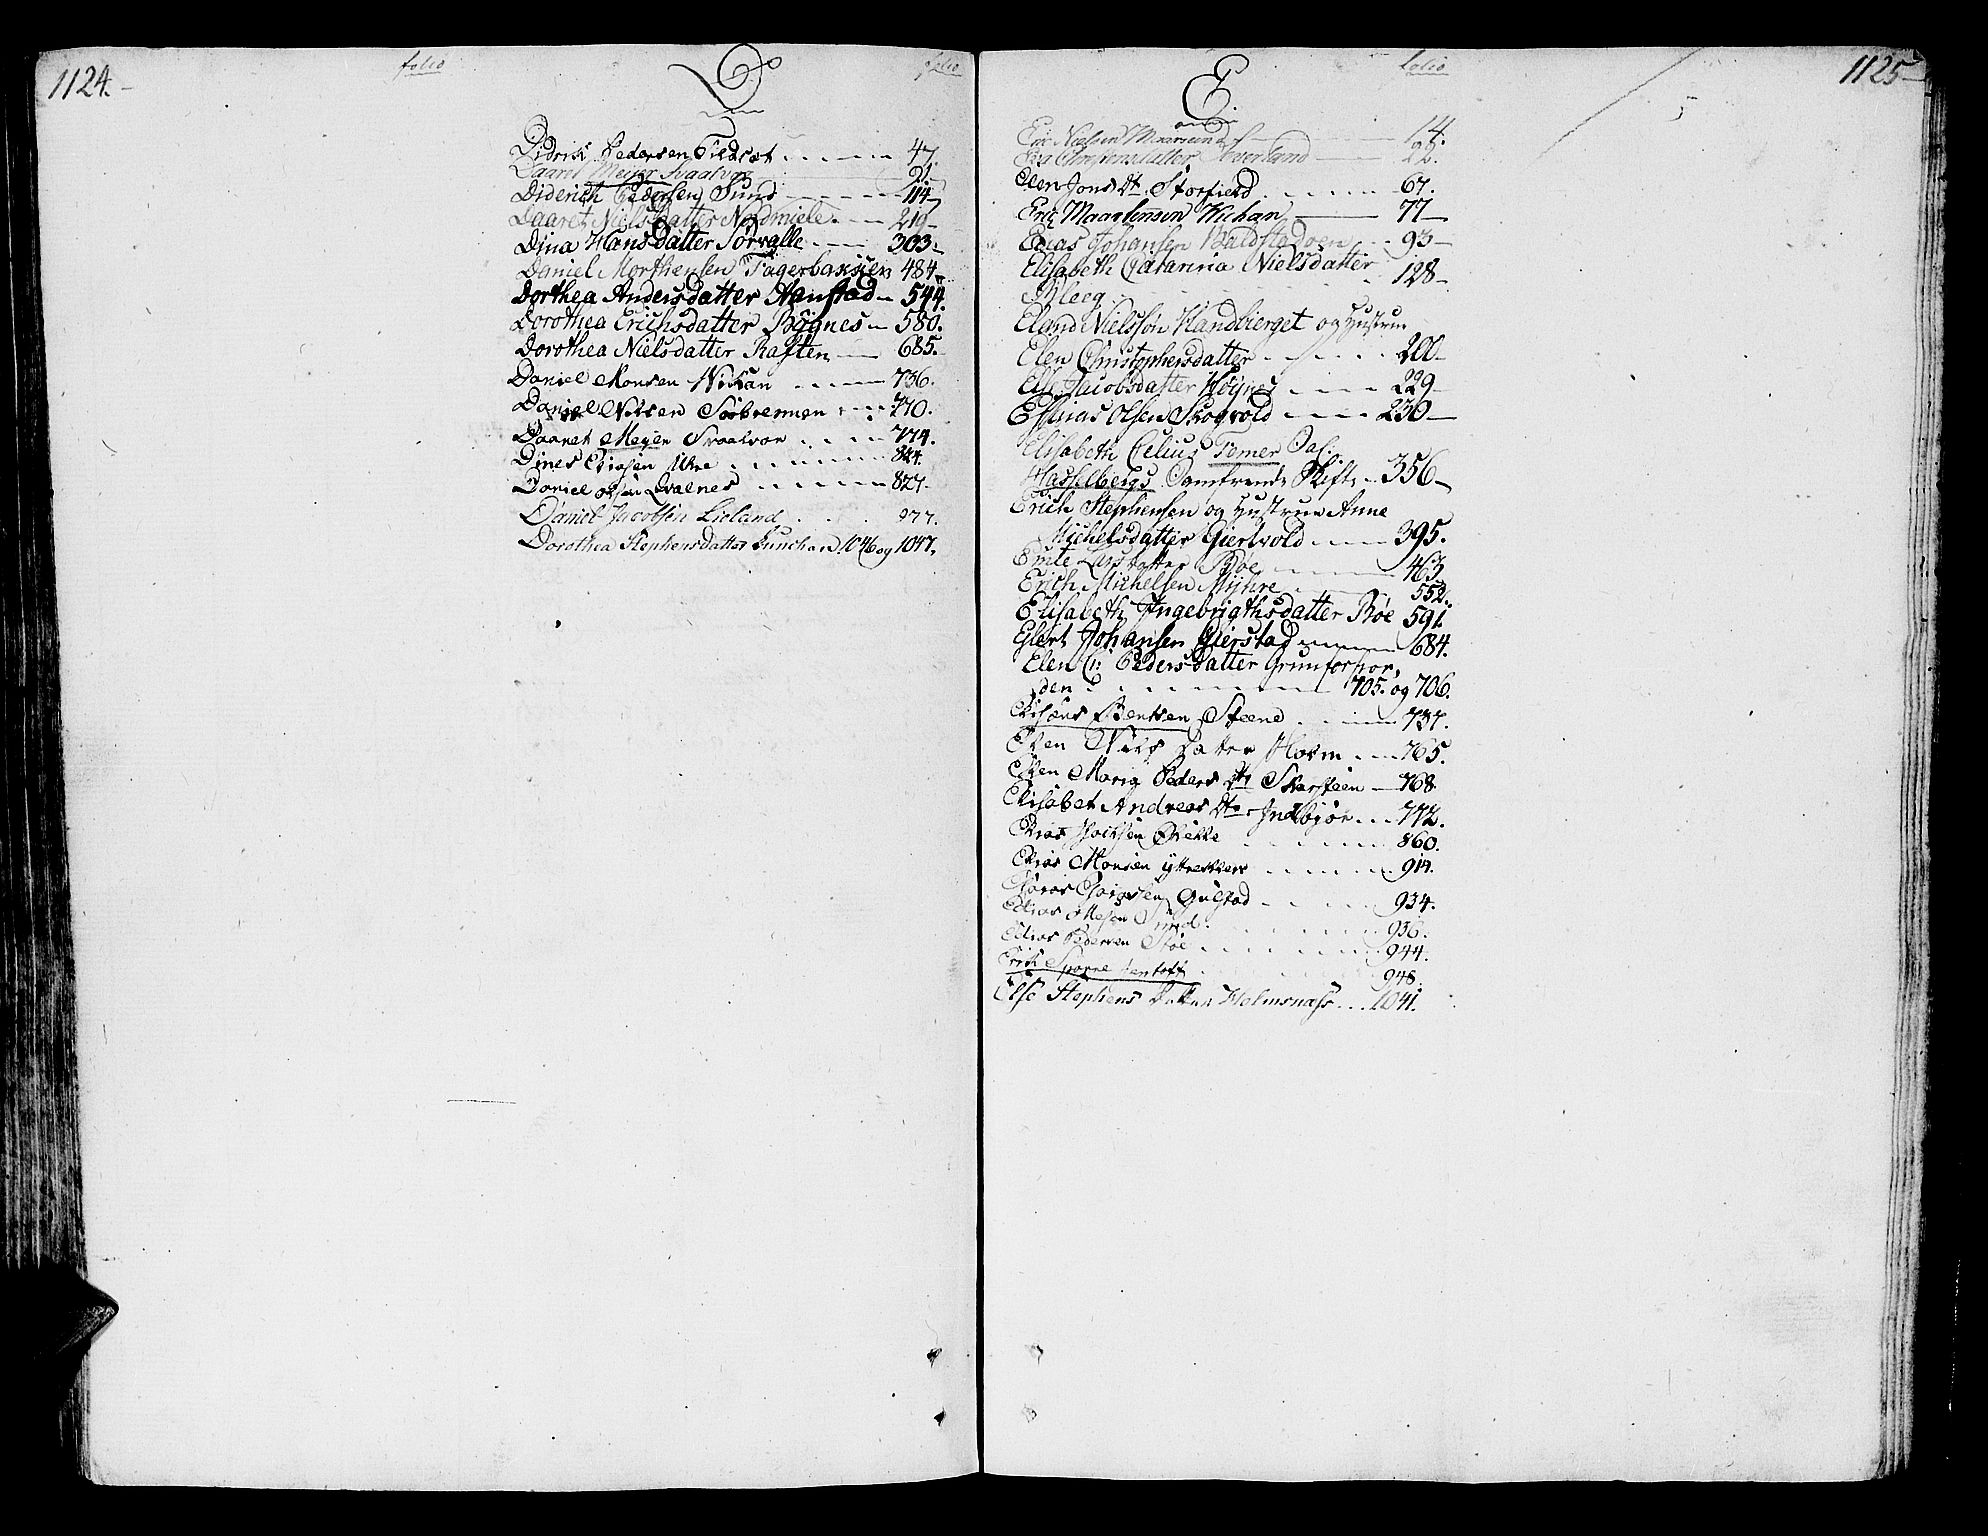 1124.
folio
D
folio
Didrik Pedersen Tildset 47.
Daaret Meyer Svaalvær 91.
Diderich Pedersen Sund 114
Daaret Nielsdatter Nordmiele 219
Dina Hansdatter Sørvalle 303.
Daniel Morthensen Fagerbakken 484
Dorthea Andersdatter Nenstad 544.
Dorothea Erichsdatter Bøgnes 580.
Dorothea Nielsdatter Raften 685.
Daniel Monsen Wikan 736.
Daniel Nilsen Sørbrennen 770.
Daaret Meyer Svaalvær 774.
Dines 824.
Daniel Olsen Qvalnes 827.
Daniel Jacobsen Lieland 977.
Dorothea Stephensdatter 1046 og 1047.
1125
E
folio
Eric Nielsen 14.
Eva Christensdatter 22.
Elen Jons Dt. Storfield 67.
Eric Maartensen Wichan 77
Elias Johansen 93
Elisabeth Catarina Nielsdatter
Bleeg 128
Eland Nielssøn Handbierget og Hustrue
Elen Christophersdatter 200
Else Jacobsdatter Høynes 229
Efenias Olsen Skogvold 230
Elisabeth Celius Temer Sal.
Hasselbergs Samfrende Skifte 356
Erich Stephensen og Hustrue Anne
Michelsdatter Giertvold 395.
Larsdatter Bøe 463
Erich Michelsen Myhre 552.
Elisabeth Ingebrigthsdatter Bøe 591
Eilert Johansen Gierstad 684.
Elen C: Pedersdatter Grunforfior,
den 705. og 706.
Bentsen Steene 737.
Elen Nils Datter Holm 765.
Elen Marig Peders Dtr Skarsteen 768.
Elisabet Andreas Dtr Indbiør 772.
Elias 860.
Elias Monsen 914.
Gulstad 934.
Elias Ottesen 936.
Elias Pedersen Bøe 944.
Erik 948.
Else Stephens Datter Holmsnæss 1041.